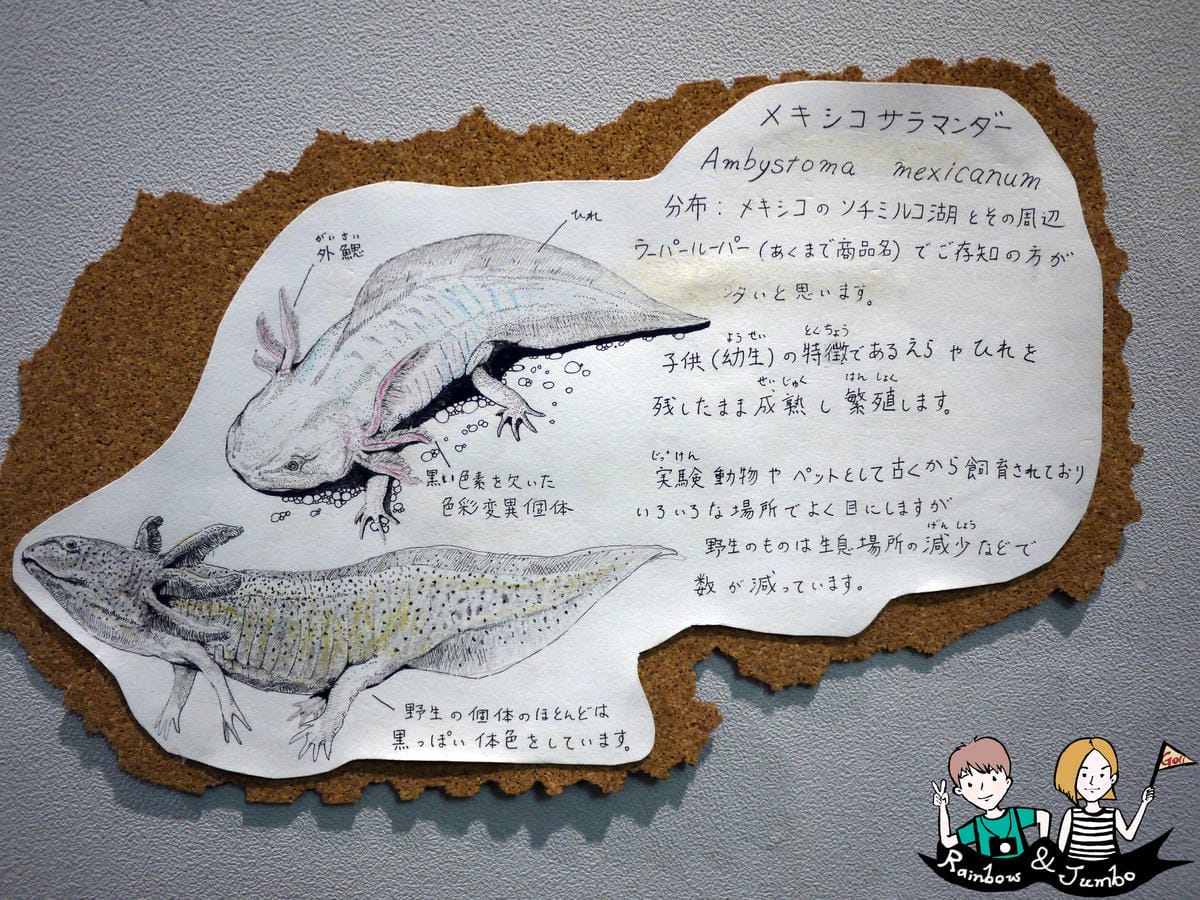 メキシコサラマンダー
Ambystoma mexicanum
分布：メキシコのソチミルコ湖とその周辺
ウーパールーパー(あくまで商品名)でご存知の方が
多いと思います。
ようせい とくちょう
子供(幼生)の特徴であるえらやひれを
せいじゅく はんしょく
残したまま成熟し繁殖します。
じっけん
実験動物やペットとして古くから飼育されており
いろいろな場所でよく目にしますが
げんしょう
野生のものは生息場所の減少などで
数が減っています。
ひれ
がいさい
外鰓
黒い色素を欠いた
色彩変異個体
野生の個体のほとんどは
黒っぽい体色をしています。
Go!!
Rainbow & Jumbo